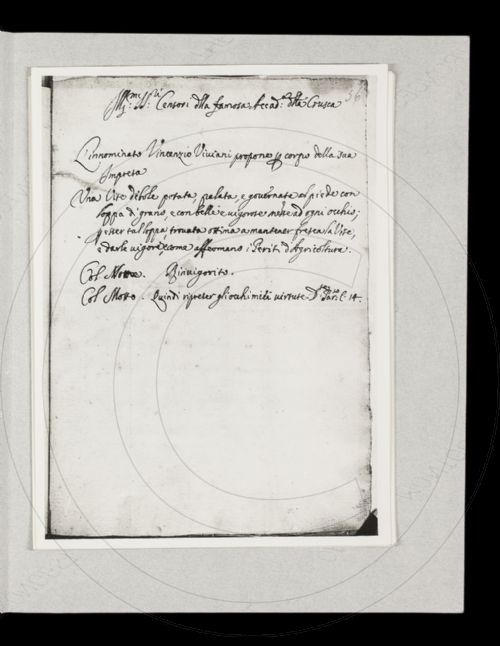 Ill:mi SS:ri Censori d'lla famosa Accad:a d'lla Crusca
36
L'innominato Vincenzio Viviani propone p corpo della sua
Impresa
Una Vite debole potata, palata, e governata al piede con
loppa di grano, e con belle e vigorose messe ad ogni occhio;
p esser tal loppa trovata ottima a mantener fresca la Vite,
e darle vigore, come affermano i Periti d'Agricoltura.
Col Nome. Rinvigorito.
Col Motto. Quindi ripreser gli occhi miei virtute. D: Par: C: 14.